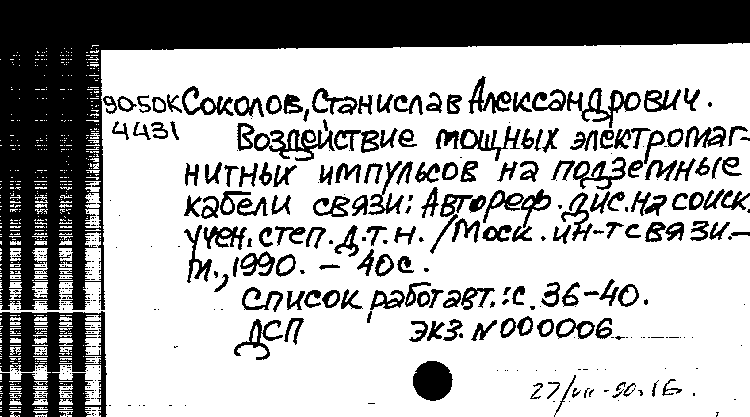 90-50К Соколов, Станислав Александрович.
4431 Воздействие мощных электромаг-
нитных импульсов на подземные
кабели связи: Автореф. дис. на соиск.
учен. степ. д.т.н. / Моск. ин-т связи.-
М., 1990. - 40с.
Список работ авт.: с. 36-40.
ДСП экз. N 000006.